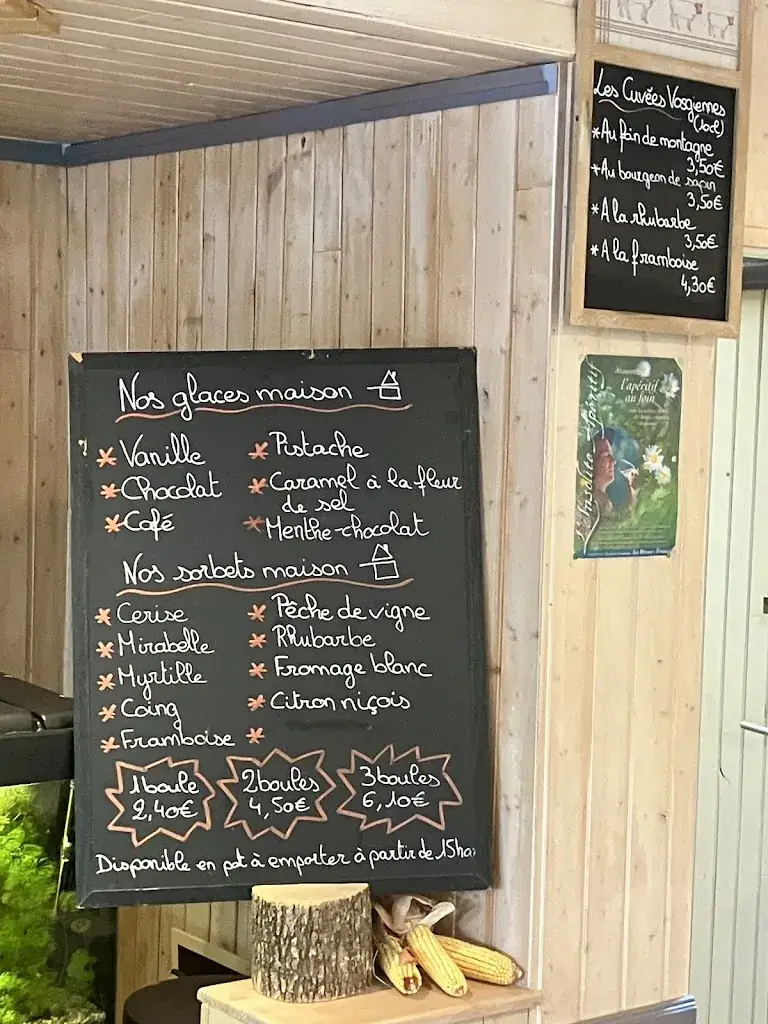 Les Cuvées Vosgiennes
(10cl)
*Au foin de montagne
3,50€
*Au bourgeon de sapin
3,50€
*A la rhubarbe
3,50€
*A la framboise
4,30€
l'apéritif
au foin
Nos glaces maison
*Vanille
*Chocolat
*Café
*Pistache
*Caramel à la fleur
de sel
*Menthe-chocolat
Nos sorbets maison
*Cerise
*Mirabelle
*Myrtille
*Coing
*Framboise
*Pêche de vigne
*Rhubarbe
*Fromage blanc
*Citron niçois
*
1 boule
2,40€
2 boules
4,50€
3 boules
6,10€
Disponible en pot à emporter à partir de 15h00